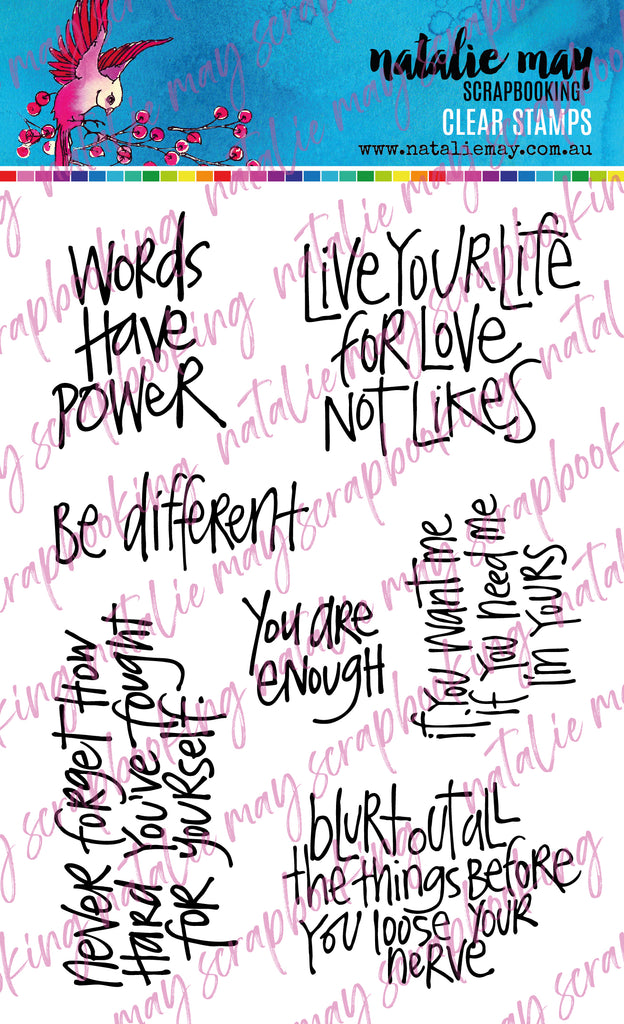 natalie may
SCRAPBOOKING
CLEAR STAMPS
www.nataliemay.com.au
WORDS
HAVE
POWER
LIVE YOUR LIFE
FOR LOVE
NOT LIKES
Be different
You are
enough
if you want me
if you need me
im yours
never forget how
hard you've fought
for yourself.
blurt out all
the things before
you loose your
nerve
natalie may scrapbooking